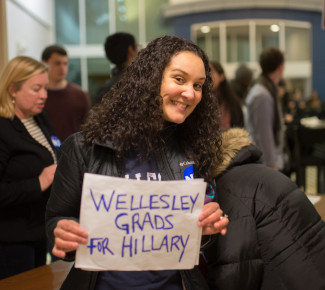 WELLESLEY
GRADS
FOR HILLARY